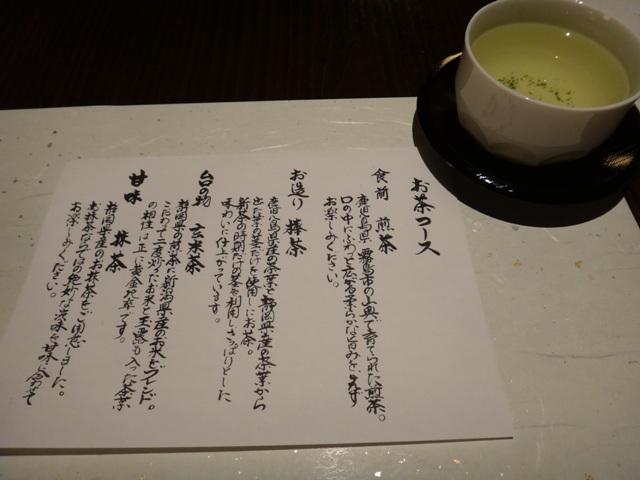 お茶コース
食前 煎茶
鹿児島県霧島市の山奥で育てられた煎茶。
口の中にふわっと広がる柔らかな旨みを
お楽しみください。
お造り 棒茶
鹿児島県産の茶葉と静岡県産の茶葉から
出た茎の茎だけを使用したお茶。
新茶の時期だけの茎を利用しさっぱりとした
味わいに仕上がっています。
台の物 玄米茶
静岡県の煎茶に新潟県産のお米をブレンド。
こだわって二度炒ったお米と玉露も入った茶葉
の相性は正に黄金比率です。
甘味 抹茶
静岡県産のお抹茶をご用意しました。
お抹茶ならではの絶妙な渋味を甘味に合わせて
お楽しみください。